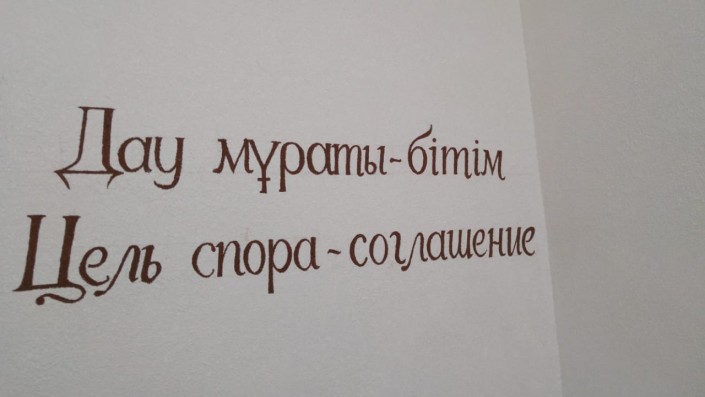 Дау мұраты-бітім
Цель спора-соглашение